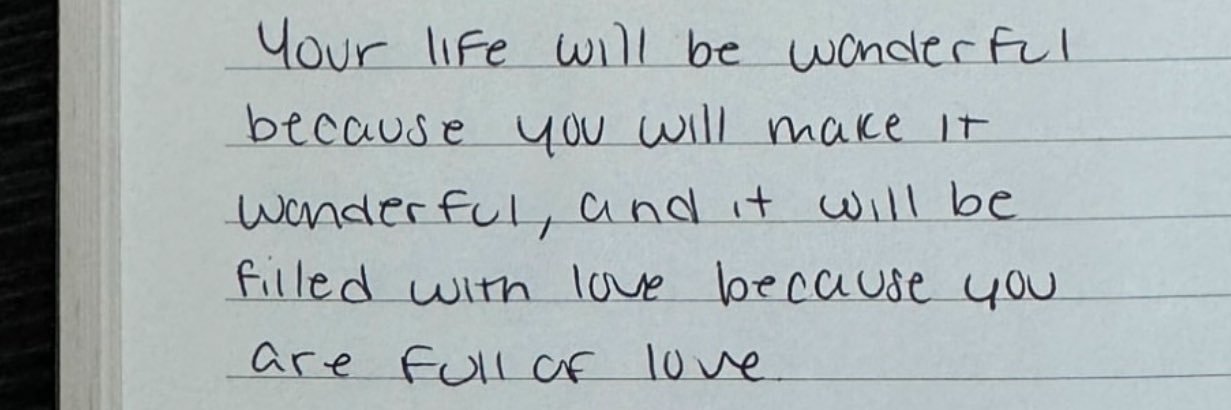 Your life will be wonderful
because you will make it
wonderful, and it will be
filled with love because you
are full of love